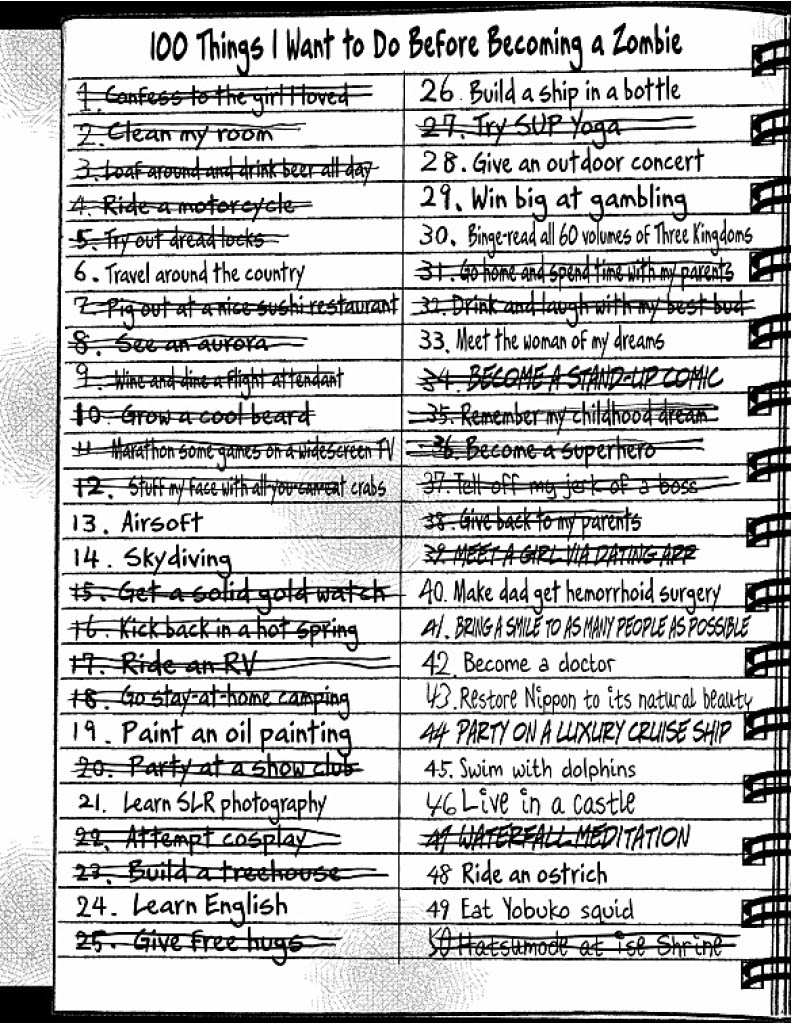 100 Things I Want to Do Before Becoming a Zombie
1. Confess to the girl I loved
2. Clean my room
3. Loaf around and drink beer all day
4. Ride a motorcycle
5. Try out dreadlocks
6. Travel around the country
7. Pig out at a nice sushi restaurant
8. See an aurora
9. Wine and dine a flight attendant
10. Grow a cool beard
11 Marathon some games on a widescreen TV
12. Stuff my face with all you can eat crabs
13. Airsoft
14. Skydiving
15. Get a solid gold watch
16. Kick back in a hot spring
17. Ride an RV
18. Go stay-at-home camping
19. Paint an oil painting
20. Party at a show club
21. Learn SLR photography
22. Attempt cosplay
23. Build a treehouse
24. Learn English
25. Give free hugs
26. Build a ship in a bottle
27. Try SUP Yoga
28. Give an outdoor concert
29. Win big at gambling
30. Binge-read all 60 volumes of Three Kingdoms
31. Go home and spend time with my parents
32. Drink and laugh with my best bud
33. Meet the woman of my dreams
34. BECOME A STAND-UP COMIC
35. Remember my childhood dream
36. Become a superhero
37. Tell off my jerk of a boss
38. Give back to my parents
39. MEET A GIRL VIA DATING APP
40. Make dad get hemorrhoid surgery
41. BRING A SMILE TO AS MANY PEOPLE AS POSSIBLE
42. Become a doctor
43. Restore Nippon to its natural beauty
44 PARTY ON A LUXURY CRUISE SHIP
45. Swim with dolphins
46 Live in a castle
47 WATERFALL MEDITATION
48 Ride an ostrich
49 Eat Yobuko squid
50 Hatsumode at ise Shrine